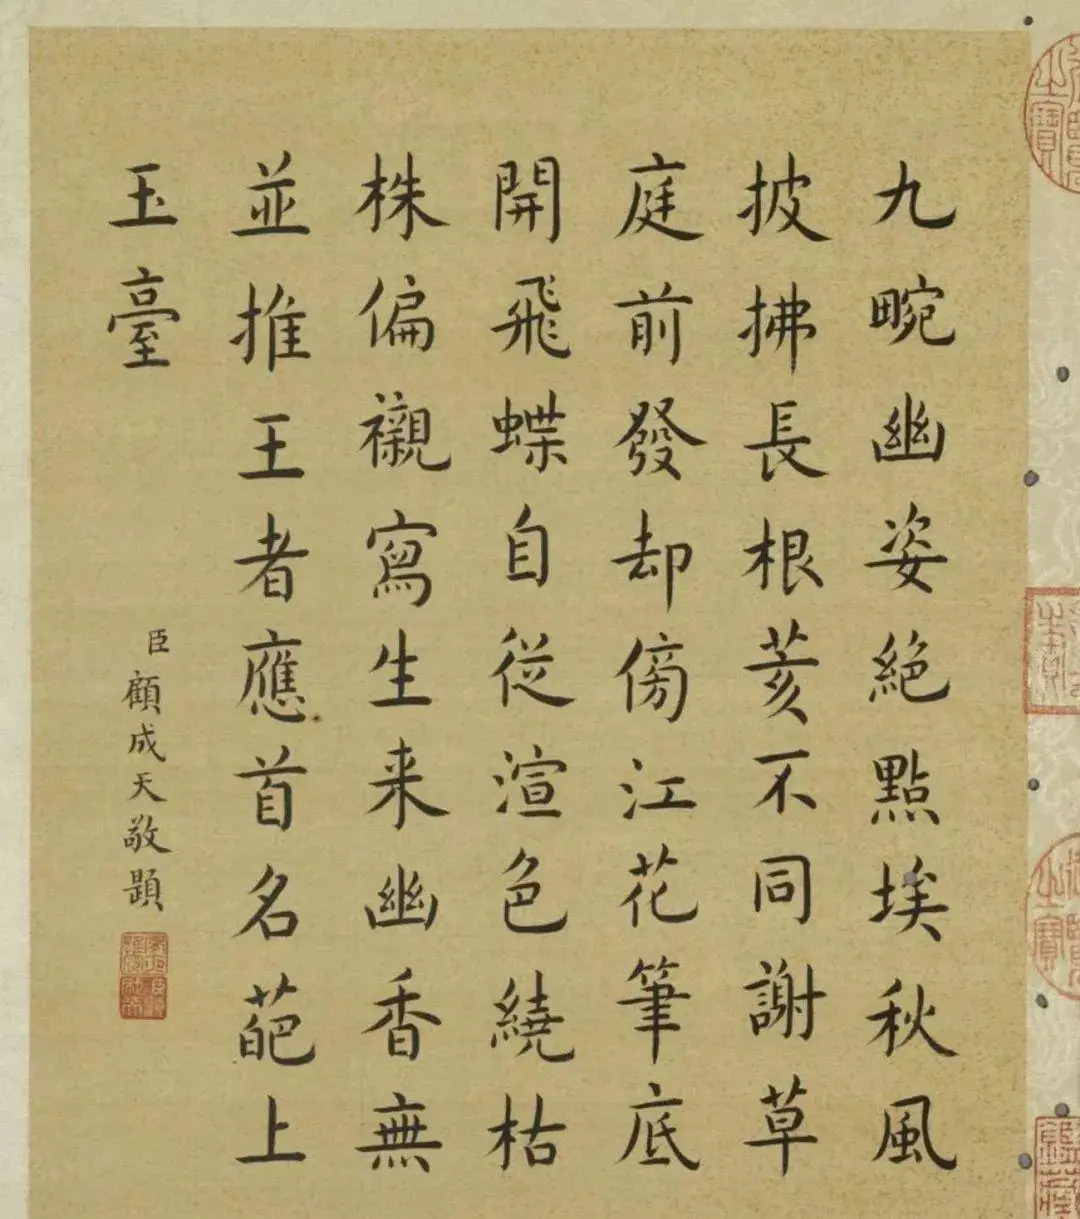 九畹幽姿絶點埃秋風
披拂長根荄不同謝草
庭前發却傍江花筆底
開飛蝶自從渲色繞枯
株偏襯寫生来幽香無
並推王者應首名葩上
玉臺
臣顧成天敬題